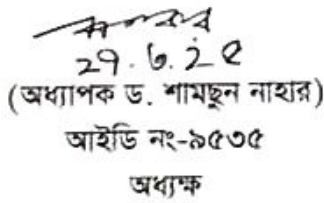 ২৭.৬.২৫
(অধ্যাপক ড. শামছুন নাহার)
আইডি নং-৯৫৩৫
অধ্যক্ষ